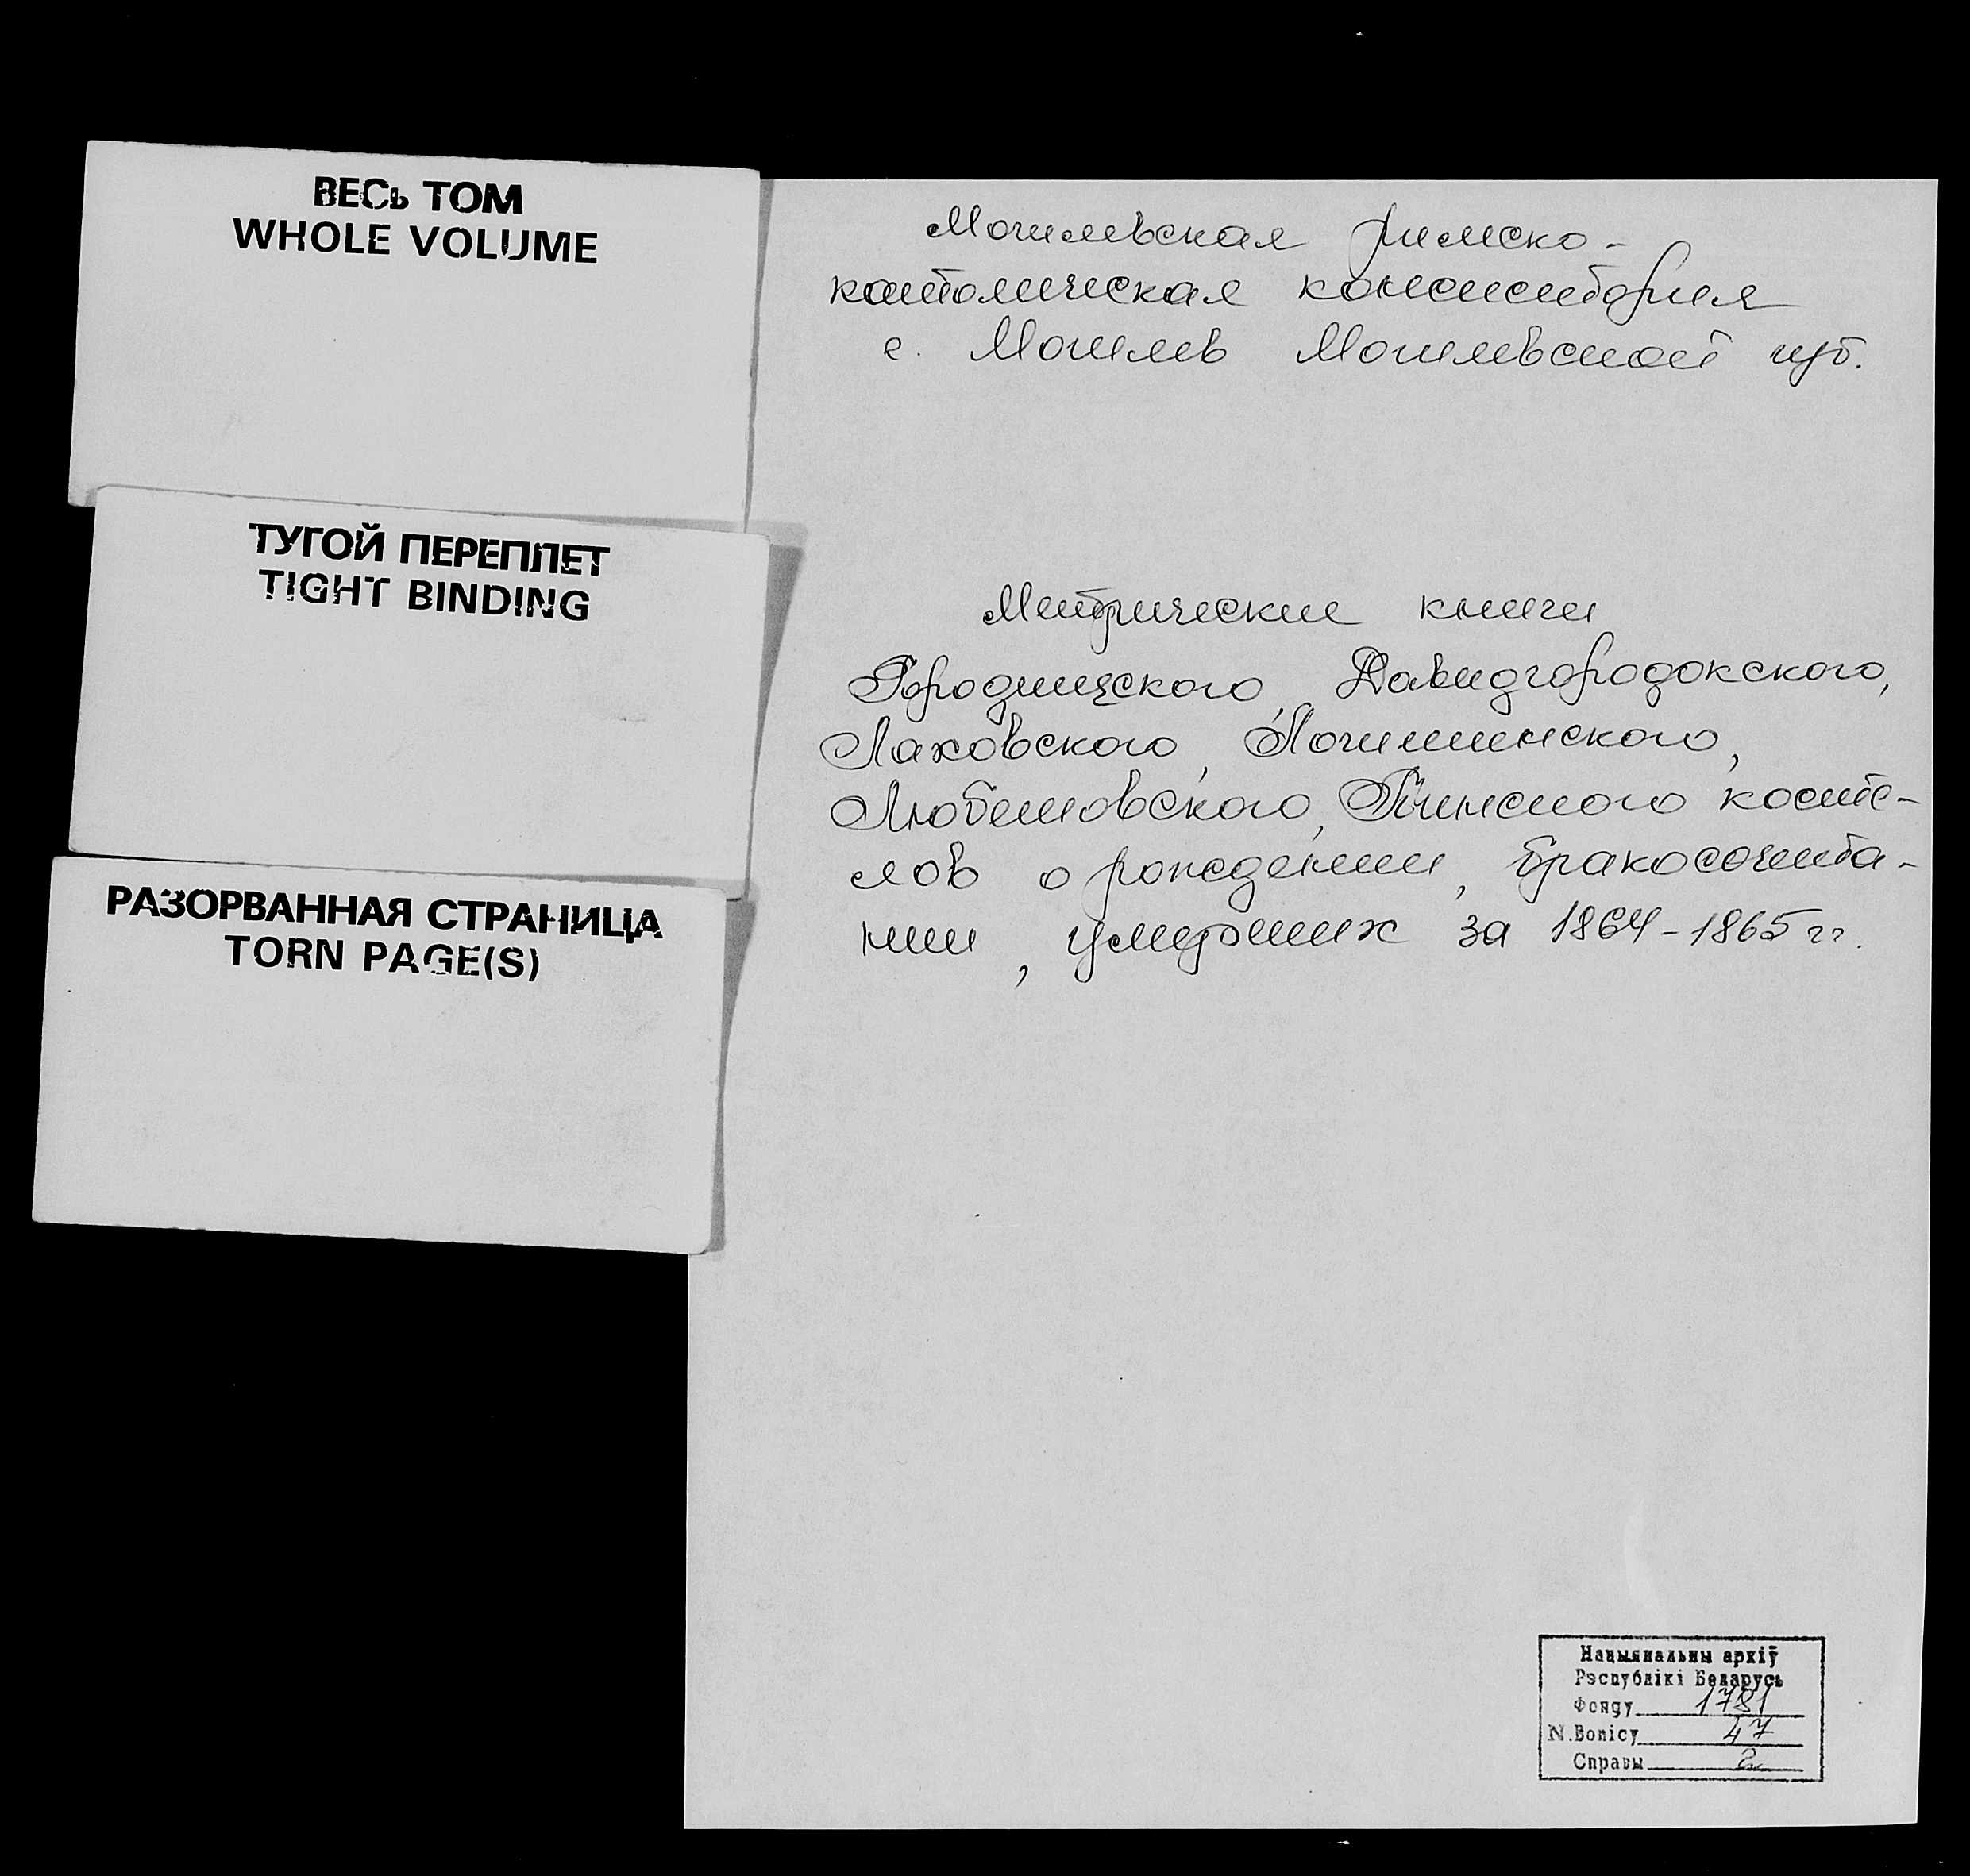 ВЕСЬ ТОМ
WHOLE VOLUME
ТУГОЙ ПЕРЕПЛЕТ
TIGHT BINDING
РАЗОРВАННАЯ СТРАНИЦА
TORN PAGE(S)
Могилевская римско-
католическая консистория
г. Могилев Могилевской губ.
Метрические книги
Городищского, Давидгородокского,
Лаховского, Логишинского,
Любешовского, Пинского косте-
лов о рождении, бракосочета-
нии, умерших за 1864-1865 гг.
Нацыянальны архіў
Рэспублікі Беларусь
Фонду 1781
N. Вопісу 47
Справы